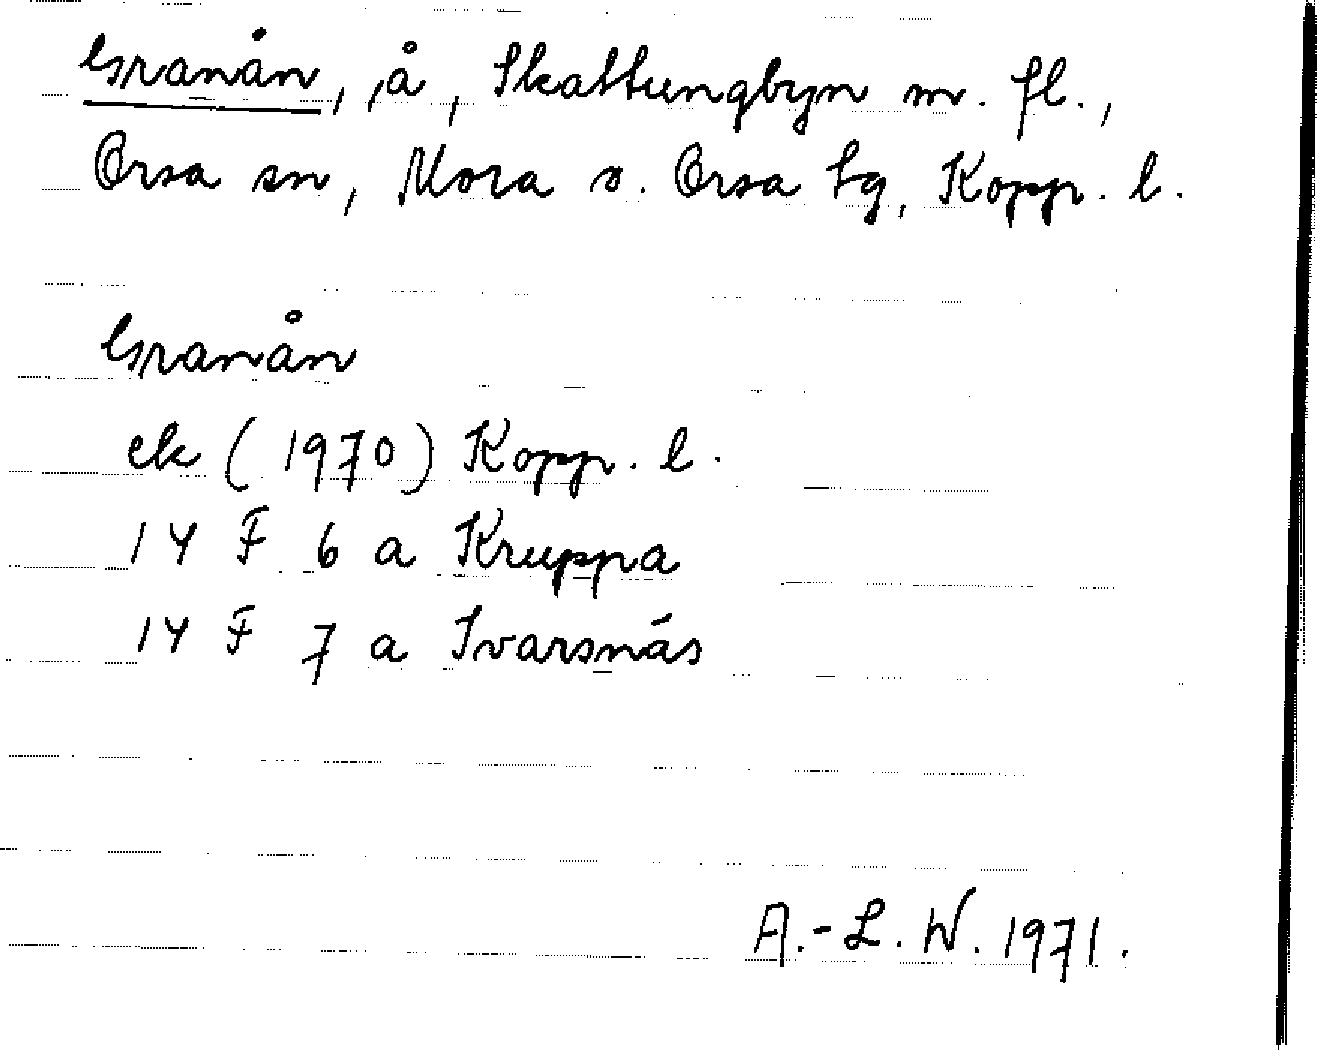 Granån, å, Skattungbyn m. fl.,
Orsa sn, Mora o. Orsa tg, Kopp. l.
Granån
ek (1970) Kopp. l.
14 F 6 a Kruppa
14 F 7 a Ivarsnäs
A.-L. W. 1971.